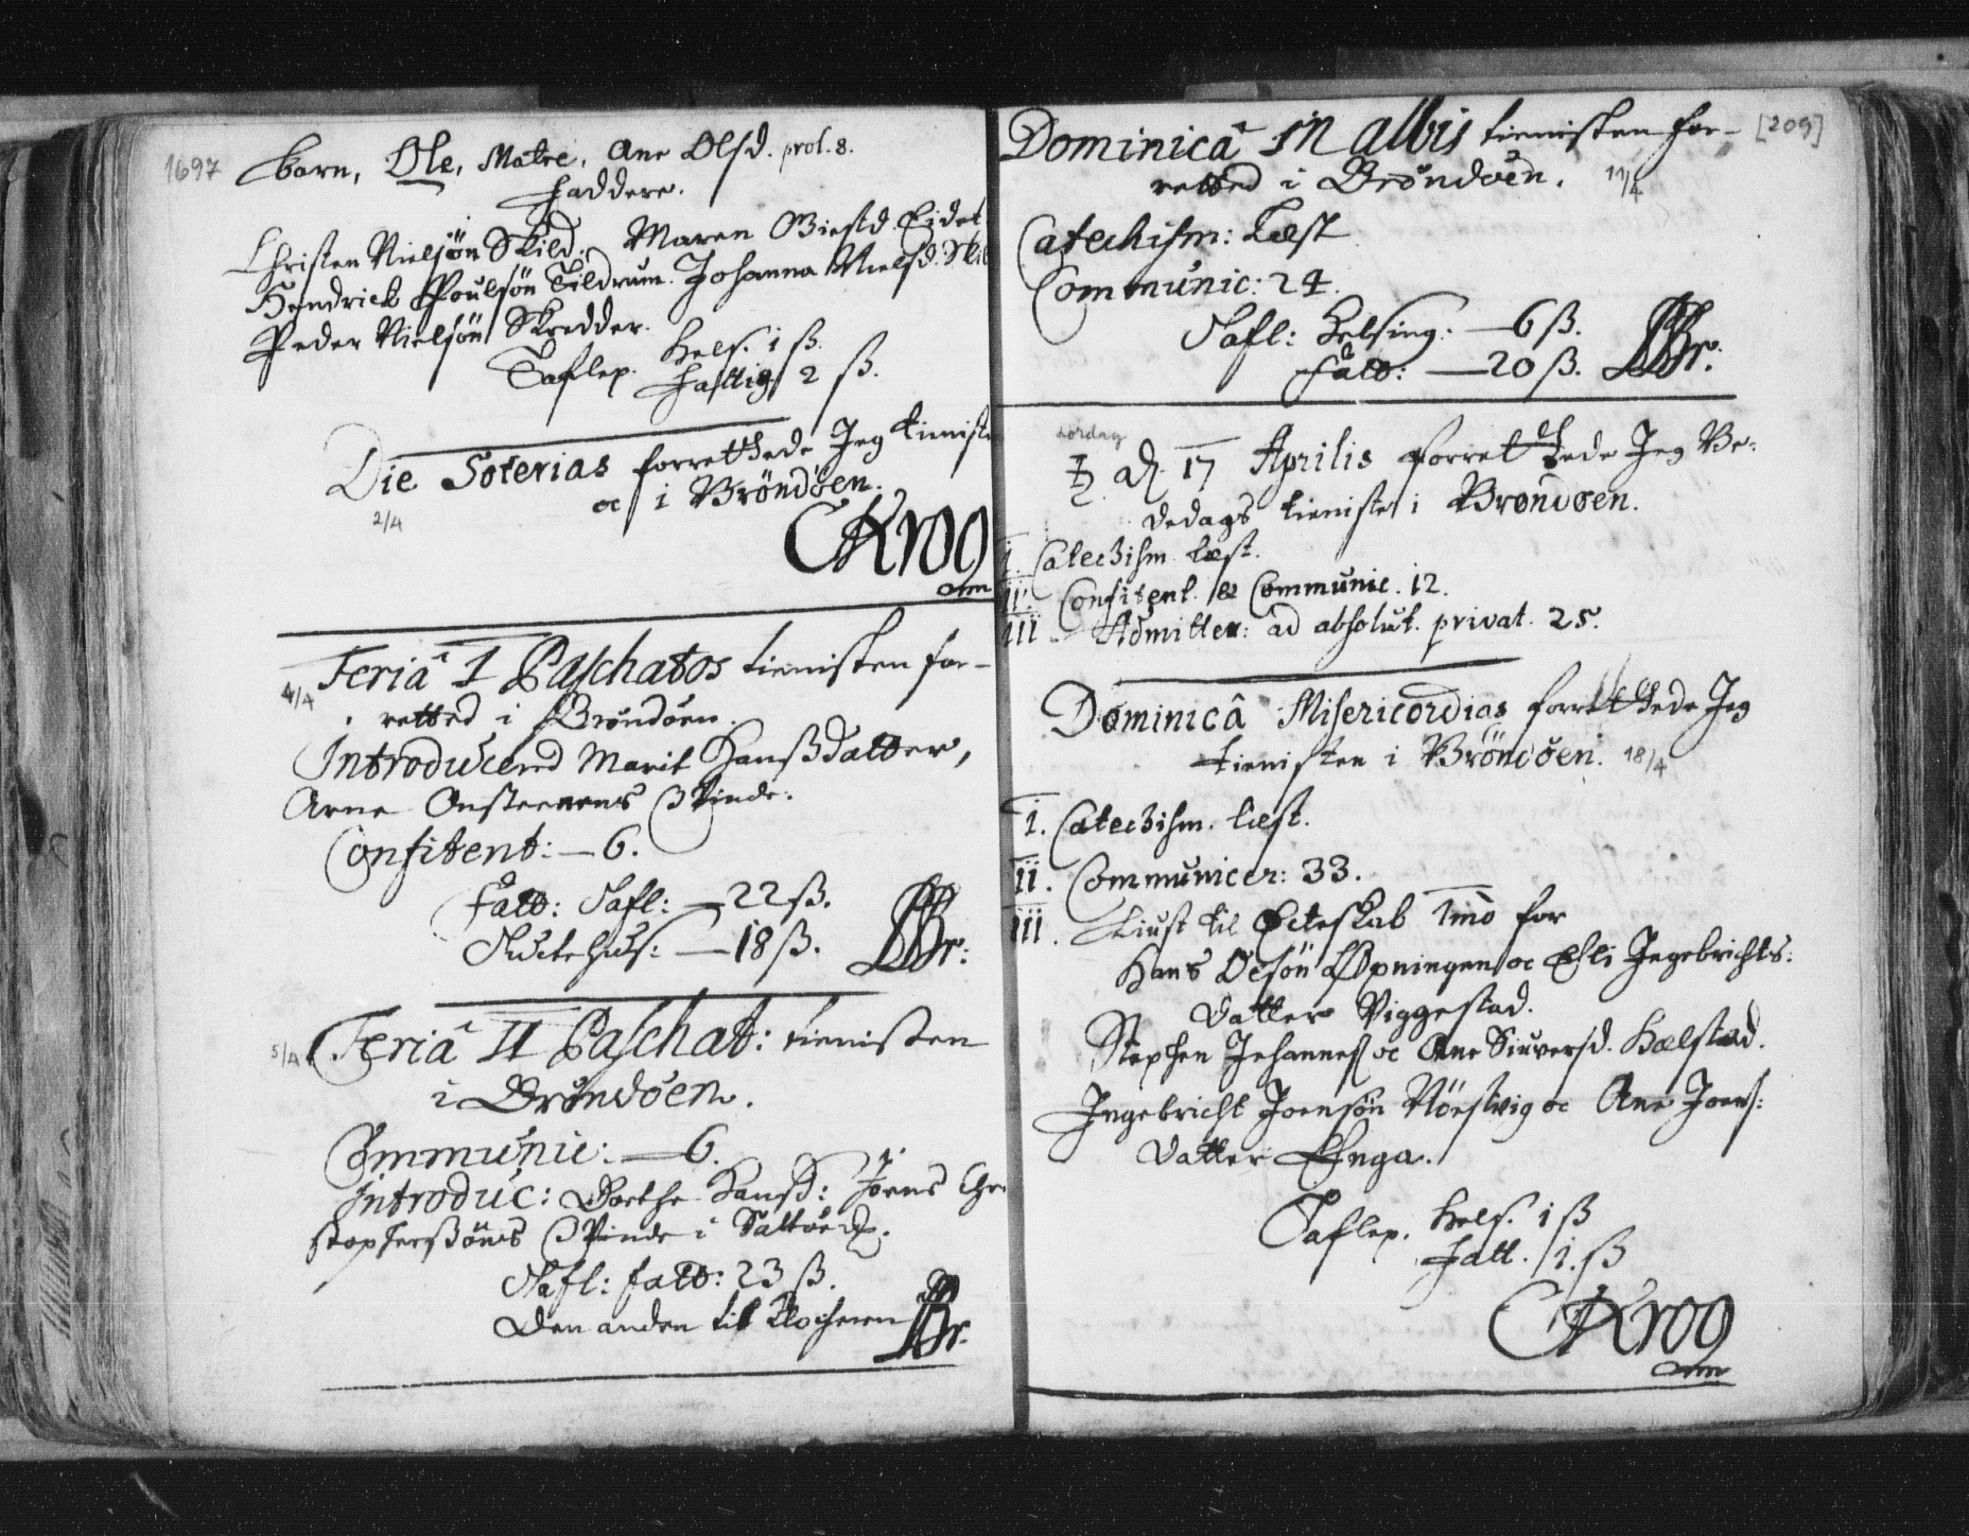 1697
barn, Ole, Matre, Ane Olsd. prol. 8.
Faddere.
Christen Nielsön Skild. Maren Giestd. Eidet
Hendrick Poulsön Tildrum. Johanna Nielsd. Skil
Peder Nielsön Skredder.
Taflep. Hels. 1 ß.
Fattig 2 ß.
Die Soterias forretthede Jeg tieniste
oc i Bröndöen.
2/4
CKrog
mm
Feriâ I Paschatos tienisten for-
4/4
retted i Bröndöen.
Introducered Marit Hanßdatter,
Arne Onsteenens Qvinde.
Confitent: — 6.
Fatt: Tafl: — 22 ß.
Suctehus: — 18 ß. Br:
Feriâ II Paschat: tienisten
5/4
i Bröndöen.
Communic: — 6.
Introduc: Dorthe Hansd: Jöens Chri
stophersöns Qvinde i Saltöe
Tafl: fatt: 23 ß.
Den anden til Klocheren Br.
Dominicâ in albis tienisten for-
[209]
retted i Bröndöen. 11/4
Catechism: Læst
Communic: 24.
Tafl: Helsing: — 6 ß.
Fatt: — 20 ß. Br:
Lördag
♄ d. 17 Aprilis forretthede Jeg Be-
dedags tieniste i Bröndöen.
I. Catechism læst.
II. Confitent. & Communic. 12.
III Admitter: ad absolut. privat. 25.
Dominicâ Misericordias forretthede Jeg
tienisten i Bröndöen. 18/4
I. Catechism. læst.
II. Communicer: 33.
III. Liust til Ecteskab 1mò for
Hans Olsön Opningen oc Elli Ingebrichts:
datter Viggestad.
Stephen Johannes oc Ane Siuversd. Hælstad.
Ingebricht Joensön Nöstvig oc Ane Joens:
datter Enga.
Taflep. Hels. 1 ß
Fatt. 1. ß
CKrog
mm